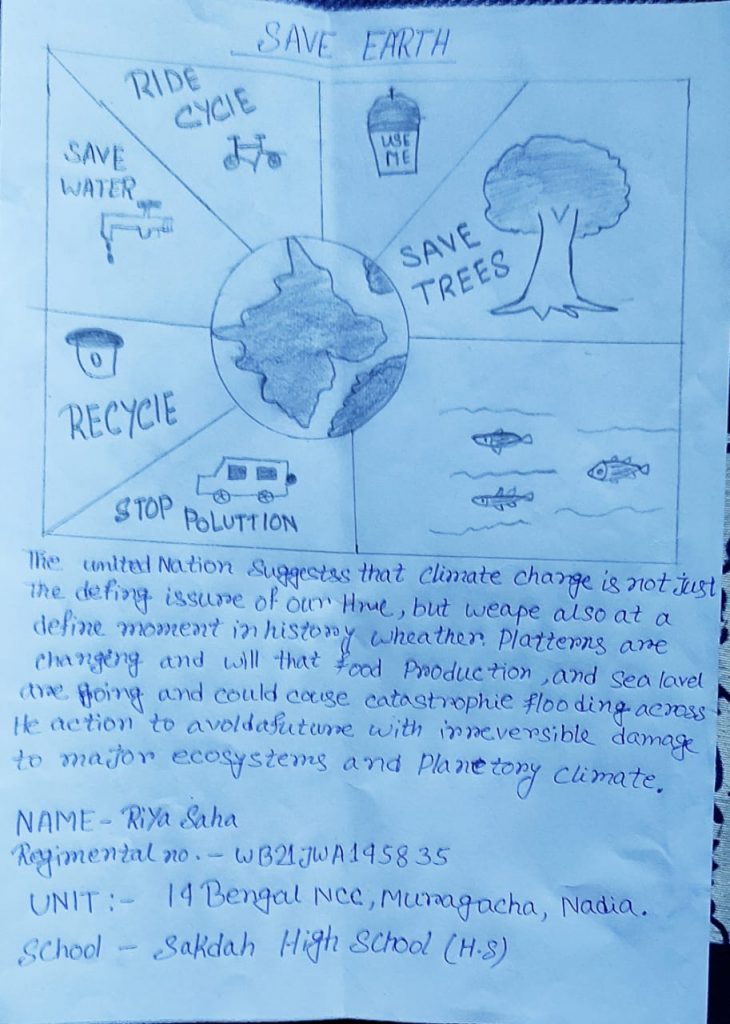 SAVE EARTH
RIDE
CYCLE
USE
ME
SAVE
WATER
SAVE
TREES
RECYCLE
STOP POLUTTION
The united Nation suggestss that climate change is not just
the defing issure of our Hme, but weape also at a
define moment in history wheather. Platterns are
changing and will that food Production, and Sea lavel
are going and could couse catastrophie flooding across
He action to avoldafuture with irreversible damage
to major ecosystems and Planetory climate.
NAME - Riya Saha
Regimental no. - WB21JWA145835
UNIT :- 14 Bengal NCC, Muragacha, Nadia.
School - Sakdah High School (H.S)